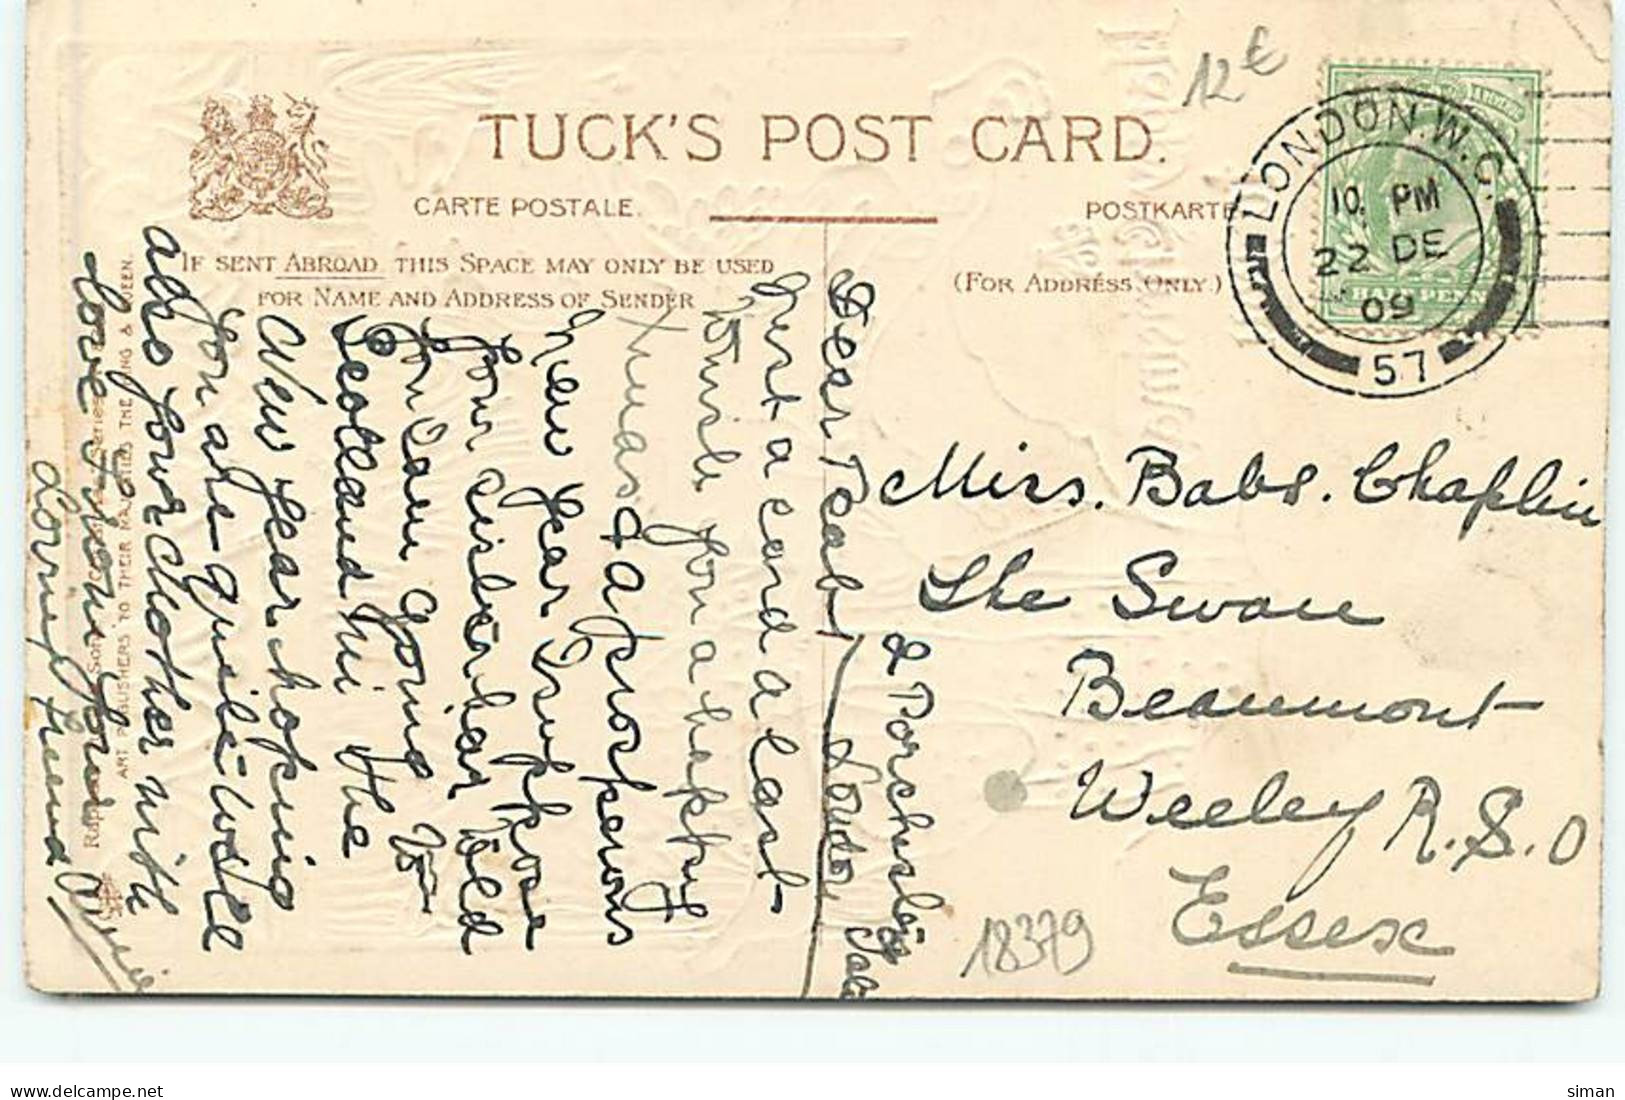 12€
TUCK'S POST CARD.
CARTE POSTALE.
POSTKARTE
IF SENT ABROAD THIS SPACE MAY ONLY BE USED
FOR NAME AND ADDRESS OF SENDER
(FOR ADDRESS ONLY.)
LONDON. W.C.
10. PM
22 DE
09
57
HALF PENNY
Miss. Babs. Chaplin
The Swan
Beaumont
Weeley R.S.O
Essex
18379
& Porchester
London
Dear
Just a card a last
wish you a happy
Xmas & a prosperous
new year I suppose
your sister has told
you I am going to
Scotland for the
New year hoping
you are quite well
also your Mother with
love from your
loving friend
Winnie
ART PUBLISHERS TO THEIR MAJESTIES THE KING & QUEEN.
siman